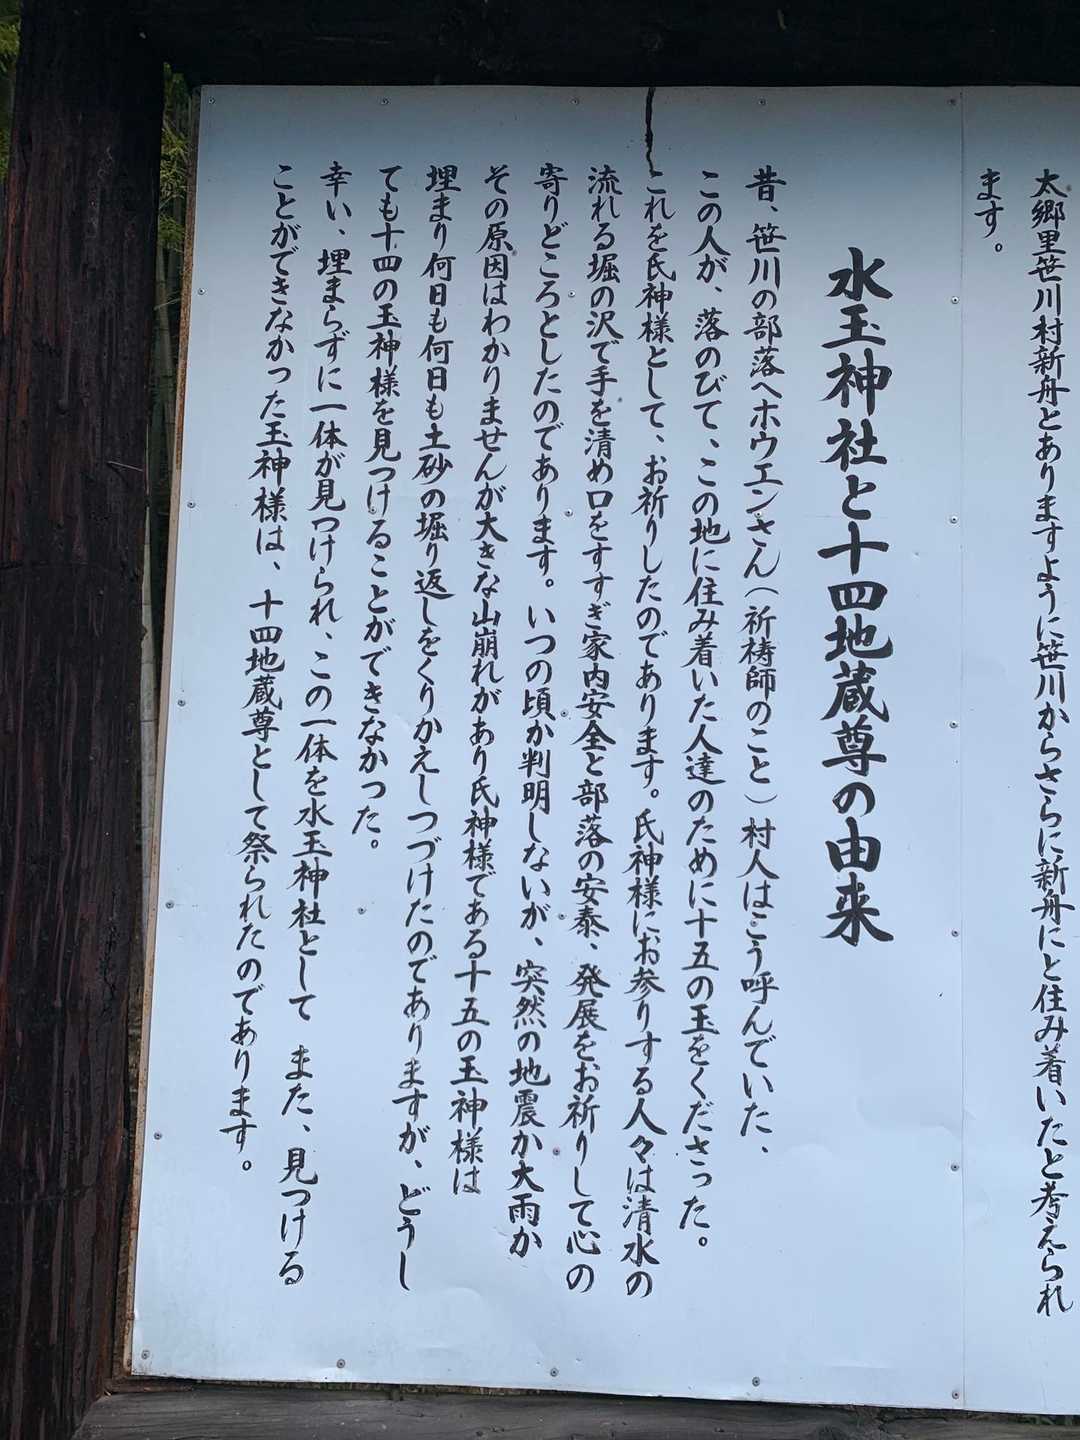 太郷里笹川村新舟とありますように笹川からさらに新舟にと住み着いたと考えられ
ます。
水玉神社と十四地蔵尊の由来
昔、笹川の部落へホウエンさん(祈祷師のこと)村人はこう呼んでいた、
この人が、落のびて、この地に住み着いた人達のために十五の玉をくださった。
これを氏神様として、お祈りしたのであります。氏神様にお参りする人々は清水の
流れる堀の沢で手を清め口をすすぎ家内安全と部落の安泰、発展をお祈りして心の
寄りどころとしたのであります。いつの頃か判明しないが、突然の地震か大雨か
その原因はわかりませんが大きな山崩れがあり氏神様である十五の玉神様は
埋まり何日も何日も土砂の堀り返しをくりかえしつづけたのでありますが、どうし
ても十四の玉神様を見つけることができなかった。
幸い、埋まらずに一体が見つけられ、この一体を水玉神社として また、見つける
ことができなかった玉神様は、十四地蔵尊として祭られたのであります。